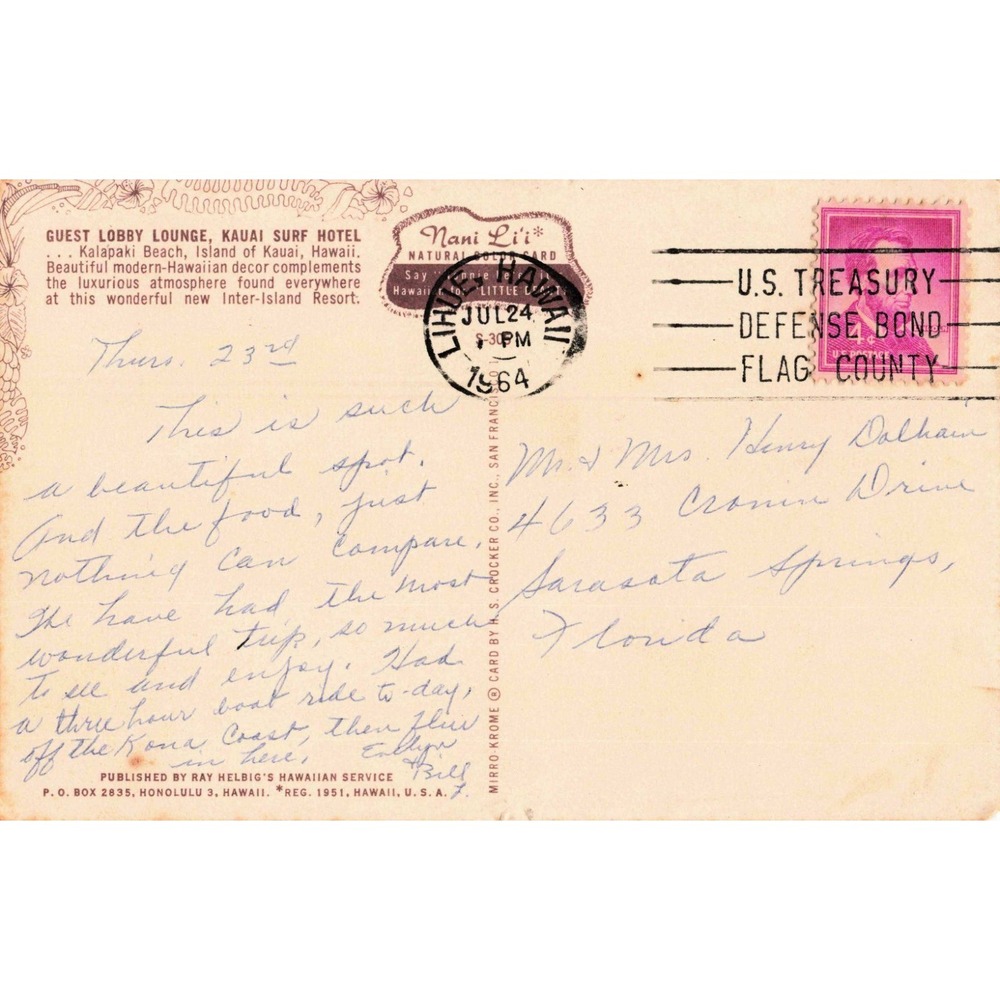 GUEST LOBBY LOUNGE, KAUAI SURF HOTEL
. . . Kalapaki Beach, Island of Kauai, Hawaii.
Beautiful modern-Hawaiian decor complements
the luxurious atmosphere found everywhere
at this wonderful new Inter-Island Resort.
Nani Li'i*
NATURAL COLOR CARD
Say
Hawaiian for "LITTLE
LIHUE, HAWAII
JUL 24
PM
1964
S-30
U.S. TREASURY
DEFENSE BOND
FLAG COUNTY
4¢
Thurs. 23rd
This is such
a beautiful spot.
And the food, just
nothing can compare.
We have had the most
wonderful trip, so much
to see and enjoy. Had
a three hour boat ride to-day,
off the Kona Coast, then flew
in here.
& Bill
Mr. & Mrs. Henry
4633 Drive
Sarasota Springs,
Florida
PUBLISHED BY RAY HELBIG'S HAWAIIAN SERVICE
P. O. BOX 2835, HONOLULU 3, HAWAII. *REG. 1951, HAWAII, U. S. A.
MIRRO-KROME ® CARD BY H. S. CROCKER CO., INC., SAN FRANCISCO